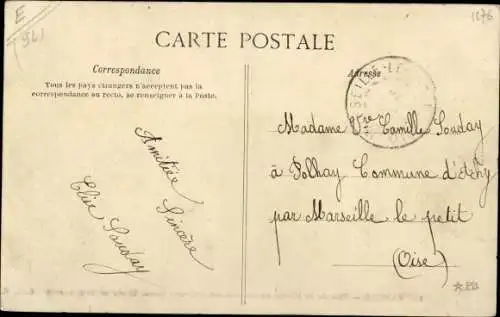 E
1276
CARTE POSTALE
Correspondance
Adresse
Tous les pays étrangers n'acceptent pas la
correspondance au recto, se renseigner à la Poste.
Amitiée
Sincère
Souday
Madame Vve Camille Souday
à Polhay Commune d'Achy
par Marseille le petit
(Oise)